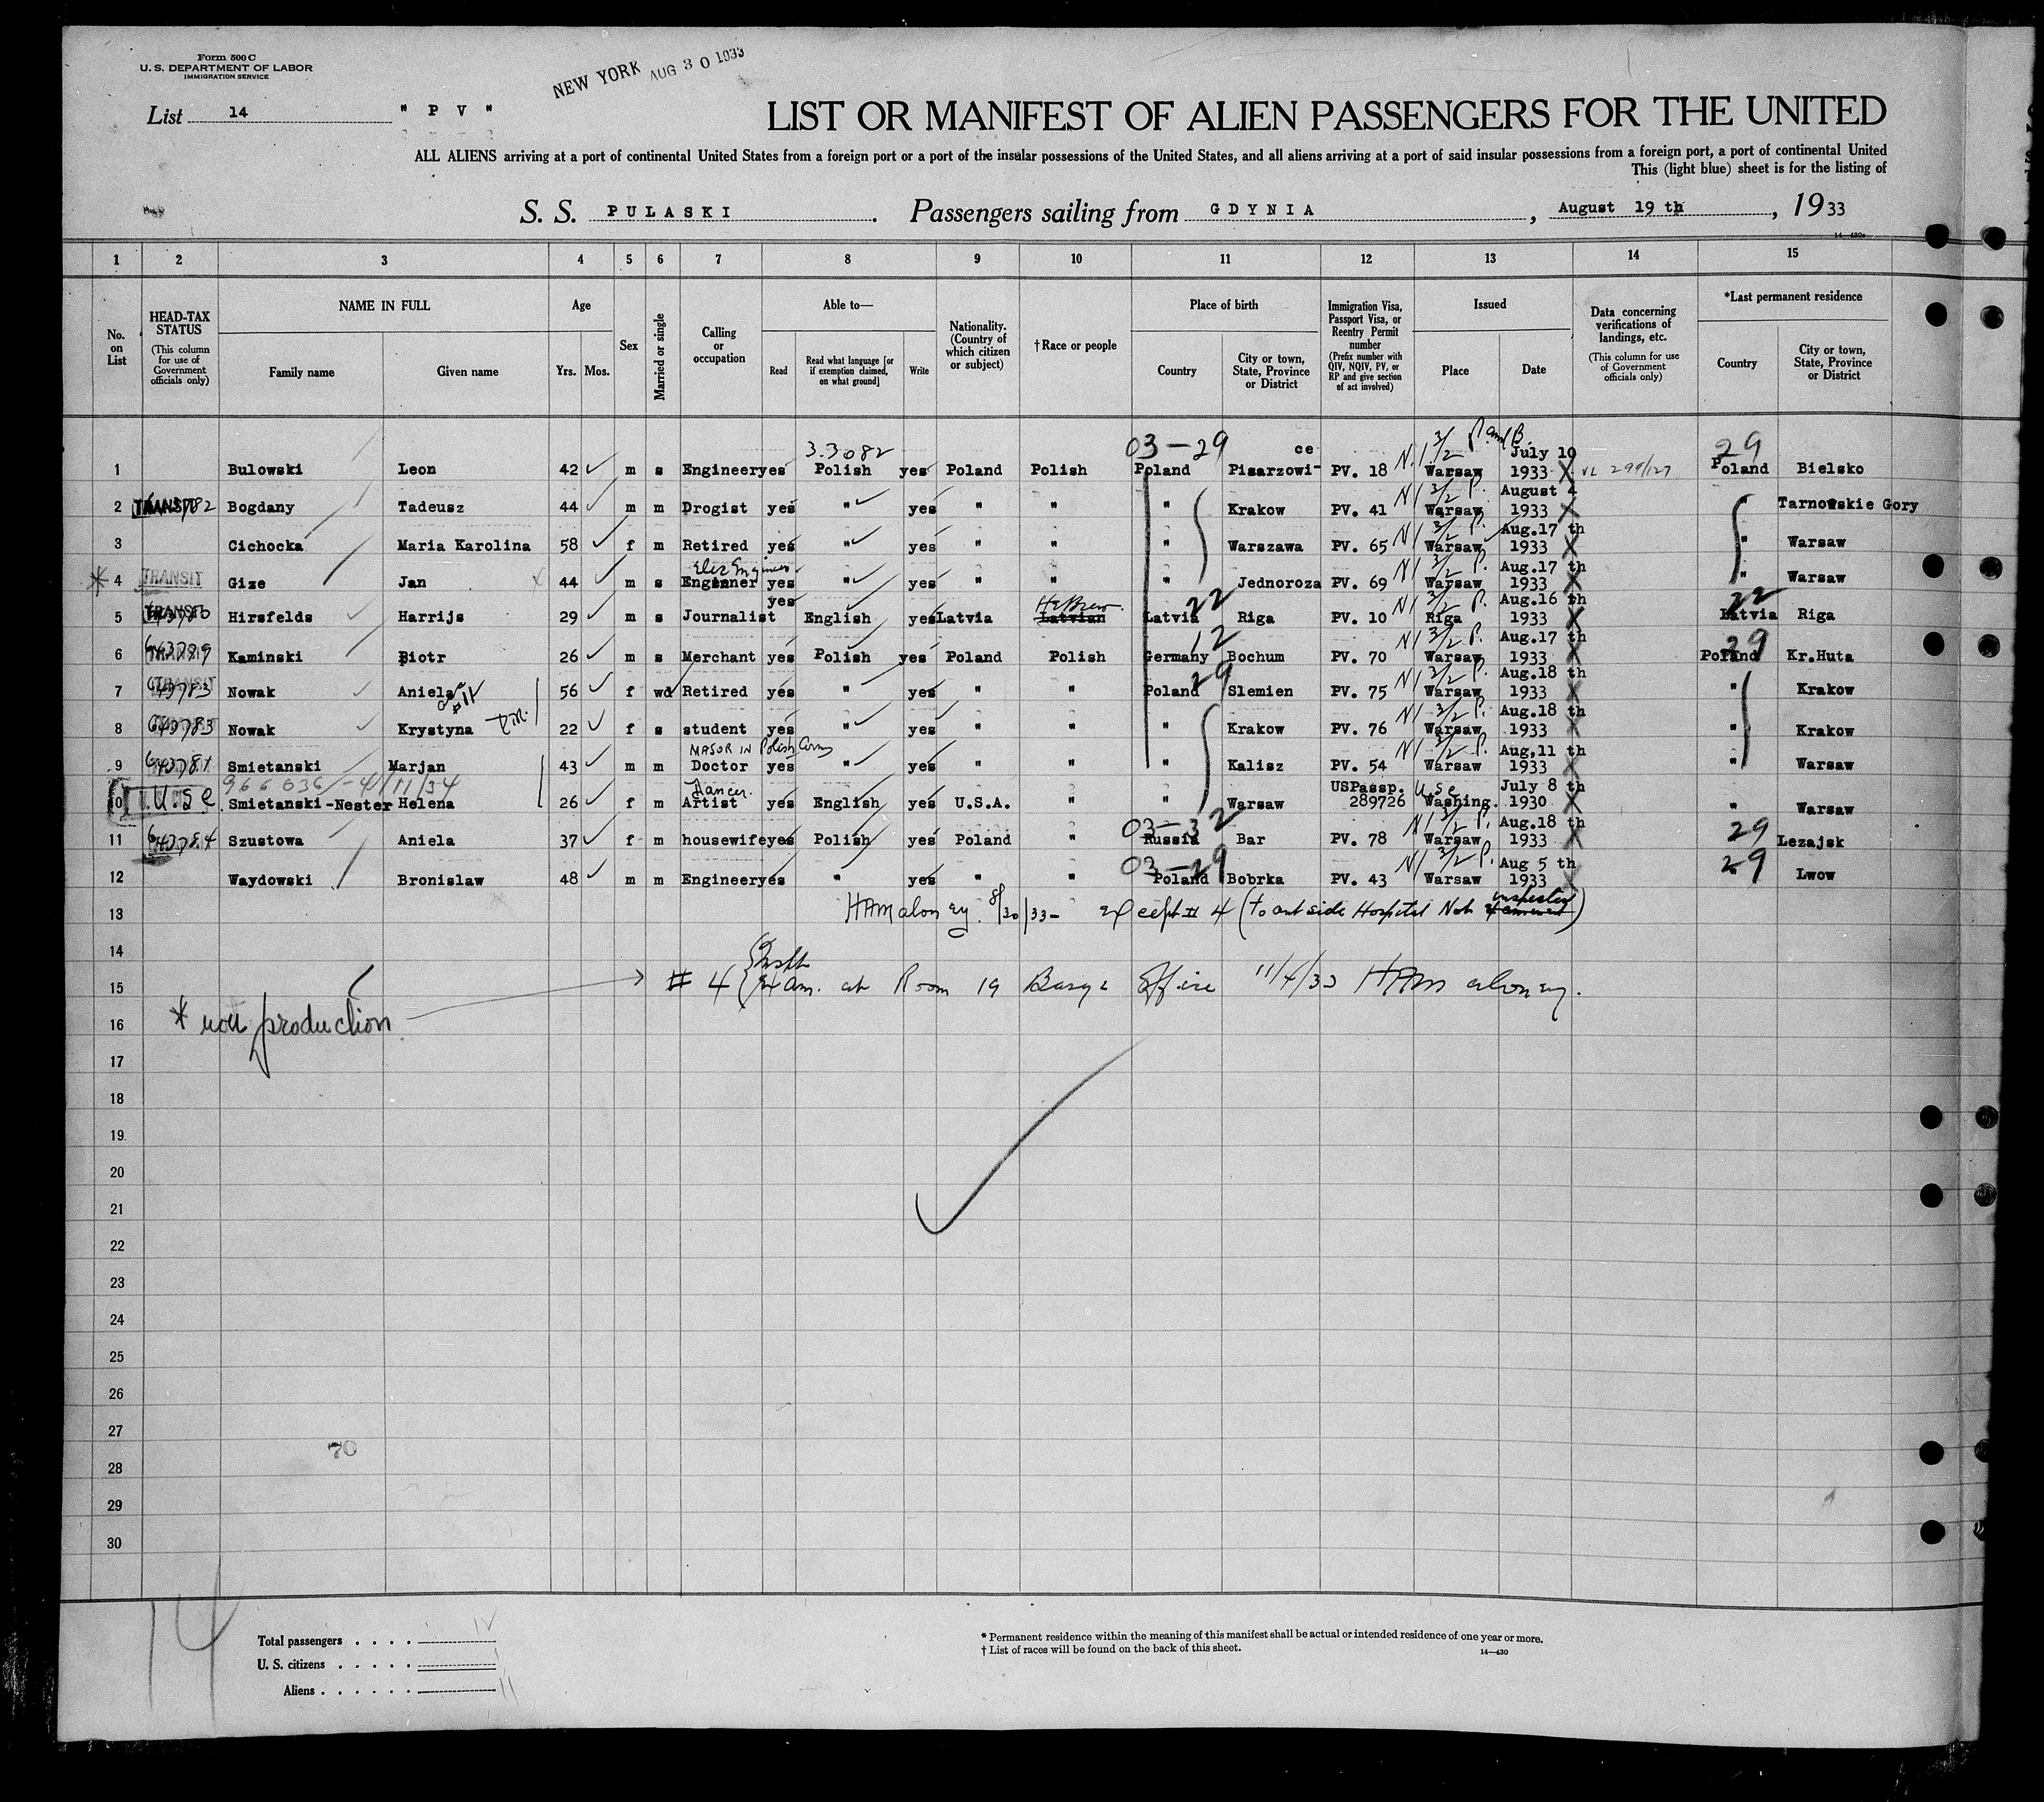 Form 500 C
U. S. DEPARTMENT OF LABOR
IMMIGRATION SERVICE
NEW YORK AUG 30 1933
List 14 " P V "
LIST OR MANIFEST OF ALIEN PASSENGERS FOR THE UNITED
ALL ALIENS arriving at a port of continental United States from a foreign port or a port of the insular possessions of the United States, and all aliens arriving at a port of said insular possessions from a foreign port, a port of continental United
This (light blue) sheet is for the listing of
S. S. PULASKI . Passengers sailing from GDYNIA , August 19 th , 1933
1 2 3 4 5 6 7 8 9 10 11 12 13 14 15
No. on List
HEAD-TAX STATUS (This column for use of Government officials only)
NAME IN FULL Family name Given name
Age Yrs. Mos.
Sex
Married or single
Calling or occupation
Able to— Read Read what language [or if exemption claimed, on what ground] Write
Nationality. (Country of which citizen or subject)
†Race or people
Place of birth Country City or town, State, Province or District
Immigration Visa, Passport Visa, or Reentry Permit number (Prefix number with QIV, NQIV, PV, or RP and give section of act involved)
Issued Place Date
Data concerning verifications of landings, etc. (This column for use of Government officials only)
*Last permanent residence Country City or town, State, Province or District
3.3082 03-29 ce N.1 3/2 P and B. July 10 29
1 Bulowski Leon 42 m s Engineer yes Polish yes Poland Polish Poland Pisarzowi- PV. 18 Warsaw 1933 X VL 299/127 Poland Bielsko
N1 3/2 P. August 4
2 TRANSIT Bogdany Tadeusz 44 m m Drogist yes " yes " " " Krakow PV. 41 Warsaw 1933 X " Tarnowskie Gory
N1 3/2 P. Aug.17 th
3 Cichocka Maria Karolina 58 f m Retired yes " yes " " " Warszawa PV. 65 Warsaw 1933 X " Warsaw
Elec Engineer N1 3/2 P. Aug.17 th
* 4 TRANSIT Gize Jan 44 m s Enginner yes " yes " " " Jednoroza PV. 69 Warsaw 1933 X " Warsaw
yes HeBrew. 22 N1 3/2 P. Aug.16 th 22
5 TRANSIT Hirsfelds Harrijs 29 m s Journalist English yes Latvia Latvian Latvia Riga PV. 10 Riga 1933 X Latvia Riga
12 N1 3/2 P. Aug.17 th 29
6 643789 Kaminski Piotr 26 m s Merchant yes Polish yes Poland Polish Germany Bochum PV. 70 Warsaw 1933 X Poland Kr.Huta
29 N1 3/2 P. Aug.18 th
7 643783 Nowak Aniela 56 f wd Retired yes " yes " " Poland Slemien PV. 75 Warsaw 1933 X " Krakow
N1 3/2 P. Aug.18 th
8 643783 Nowak Krystyna 22 f s student yes " yes " " " Krakow PV. 76 Warsaw 1933 X " Krakow
MAJOR IN Polish Army N1 3/2 P. Aug.11 th
9 643781 Smietanski Marjan 43 m m Doctor yes " yes " " " Kalisz PV. 54 Warsaw 1933 X " Warsaw
966 036/-4/11/34 Dancer. USPassp. USC July 8 th
10 U.S.C. Smietanski-Nester Helena 26 f m Artist yes English yes U.S.A. " " Warsaw 289726 Washing. 1930 X " Warsaw
03-32 N1 3/2 P. Aug.18 th 29
11 643784 Szustowa Aniela 37 f m housewife yes Polish yes Poland " Russia Bar PV. 78 Warsaw 1933 X Lezajsk
03-29 N1 3/2 P. Aug 5 th 29
12 Waydowski Bronislaw 48 m m Engineer yes " yes " " Poland Bobrka PV. 43 Warsaw 1933 X Lwow
13 HAMaloney. 8/30/33- except # 4 (to outside Hospital Not inspected)
14
15 # 4 Exam. at Room 19 Barge Office 11/4/33 HAMaloney.
16 * non production
17
18
19
20
21
22
23
24
25
26
27
70
28
29
30
14
Total passengers . . . . 12
U. S. citizens . . . . . 1
Aliens . . . . . . 11
* Permanent residence within the meaning of this manifest shall be actual or intended residence of one year or more.
† List of races will be found on the back of this sheet. 14—430